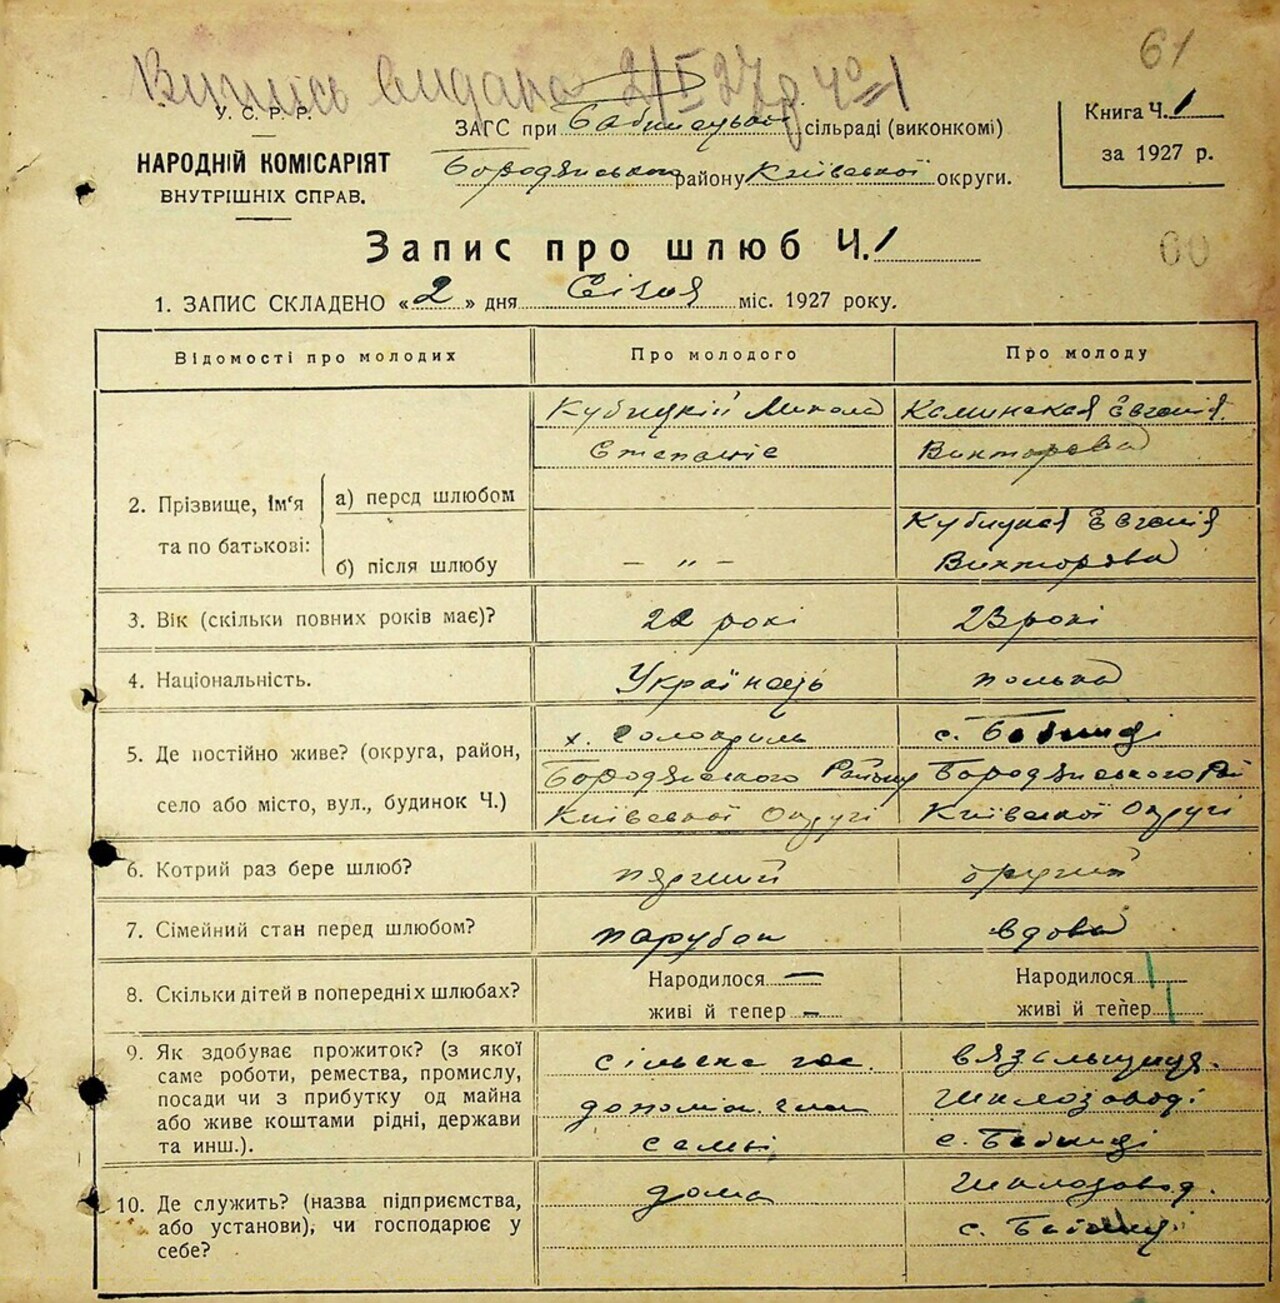 61
Випись видана 2/I 27 р Ч° 1
У. С. Р. Р.
НАРОДНІЙ КОМІСАРІЯТ
ВНУТРІШНІХ СПРАВ.
ЗАГС при Бабинецькій сільраді (виконкомі)
Бородянського району Київської округи.
Книга Ч. 1
за 1927 р.
Запис про шлюб Ч. 1
60
1. ЗАПИС СКЛАДЕНО «2» дня Січня міс. 1927 року.
Відомості про молодих
Про молодого
Про молоду
2. Прізвище, Ім'я та по батькові:
а) перед шлюбом
Кубицкій Микола
Степанів
Каминская Євгенія
Викторовa
б) після шлюбу
— „ —
Кубицкая Євгенія
Викторова
3. Вік (скільки повних років має)?
22 рокі
23 рокі
4. Національність.
Українець
полька
5. Де постійно живе? (округа, район,
село або місто, вул., будинок Ч.)
х.
Бородянського Району
Київської Округі
с. Бабинці
Бородянського Рай
Київської Округі
6. Котрий раз бере шлюб?
перший
другий
7. Сімейний стан перед шлюбом?
парубок
вдова
8. Скільки дітей в попередніх шлюбах?
Народилося —
живі й тепер —
Народилося
живі й тепер
9. Як здобуває прожиток? (з якої
саме роботи, ремества, промислу,
посади чи з прибутку од майна
або живе коштами рідні, держави
та инш.).
сільске гос.
семьі
вязальщиця.
шклозаводі
с. Бабинці
10. Де служить? (назва підприємства,
або установи), чи господарює у
себе?
дома
шклозавод.
с. Бабинці